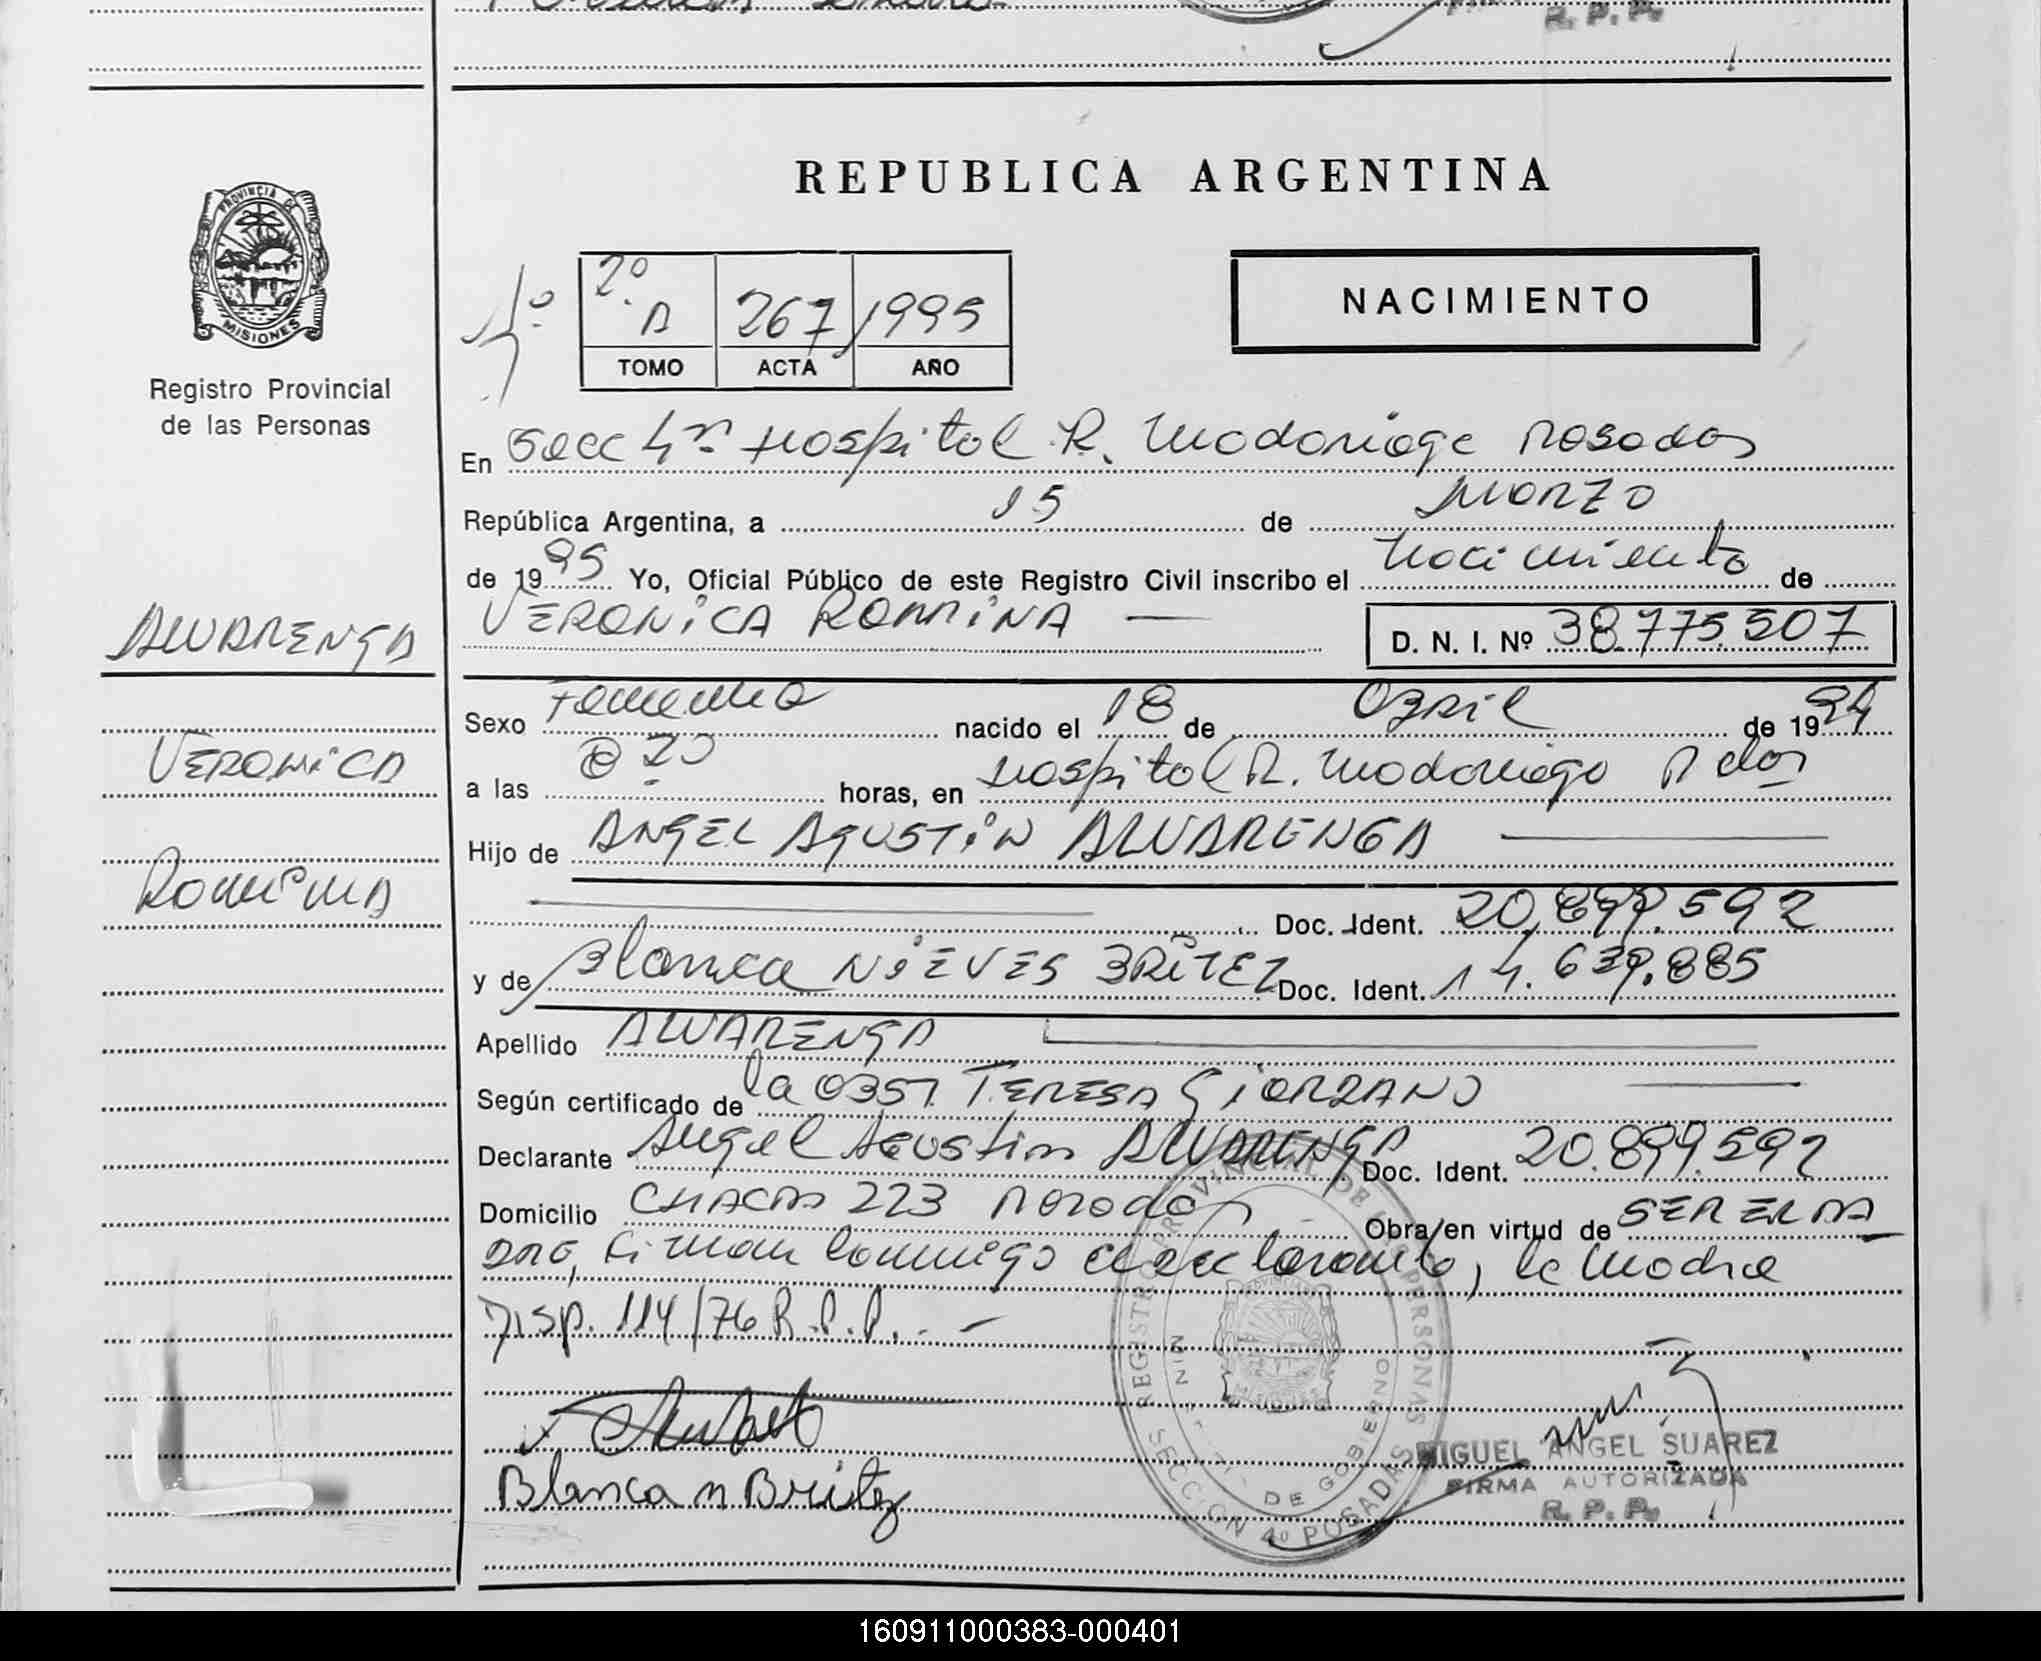 R. P. P.
REPUBLICA ARGENTINA
PROVINCIA DE
MISIONES
Registro Provincial
de las Personas
4º
2º D 267 1995
TOMO ACTA AÑO
NACIMIENTO
En Secc 4ª Hospital R. Madariaga Posadas
República Argentina, a 15 de Marzo
de 1995 Yo, Oficial Público de este Registro Civil inscribo el nacimiento de
VERONICA ROMINA — D. N. I. Nº 38.775.507
ALVARENGA
VERONICA
ROMINA
Sexo Femenino nacido el 18 de Abril de 1994
a las horas, en Hospital R. Madariaga Pdas
Hijo de ANGEL AGUSTIN ALVARENGA
Doc. Ident. 20.899.592
y de Blanca NIEVES BRITEZ Doc. Ident. 14.639.885
Apellido ALVARENGA
Según certificado de la obst. TERESA GIORDANO
Declarante Angel Agustin ALVARENGA Doc. Ident. 20.899.592
Domicilio CHACAS 223 Posadas Obra/en virtud de SER EL PA
DRE, Firman conmigo el declarante, la Madre
Disp. 114/76 R.P.P. . -
Blanca n Britez
REGISTRO PROVINCIAL DE PERSONAS
DE GOBIERNO
SECCION 4º POSADAS
MISIONES
MIGUEL ANGEL SUAREZ
FIRMA AUTORIZADA
R. P. P.
160911000383-000401